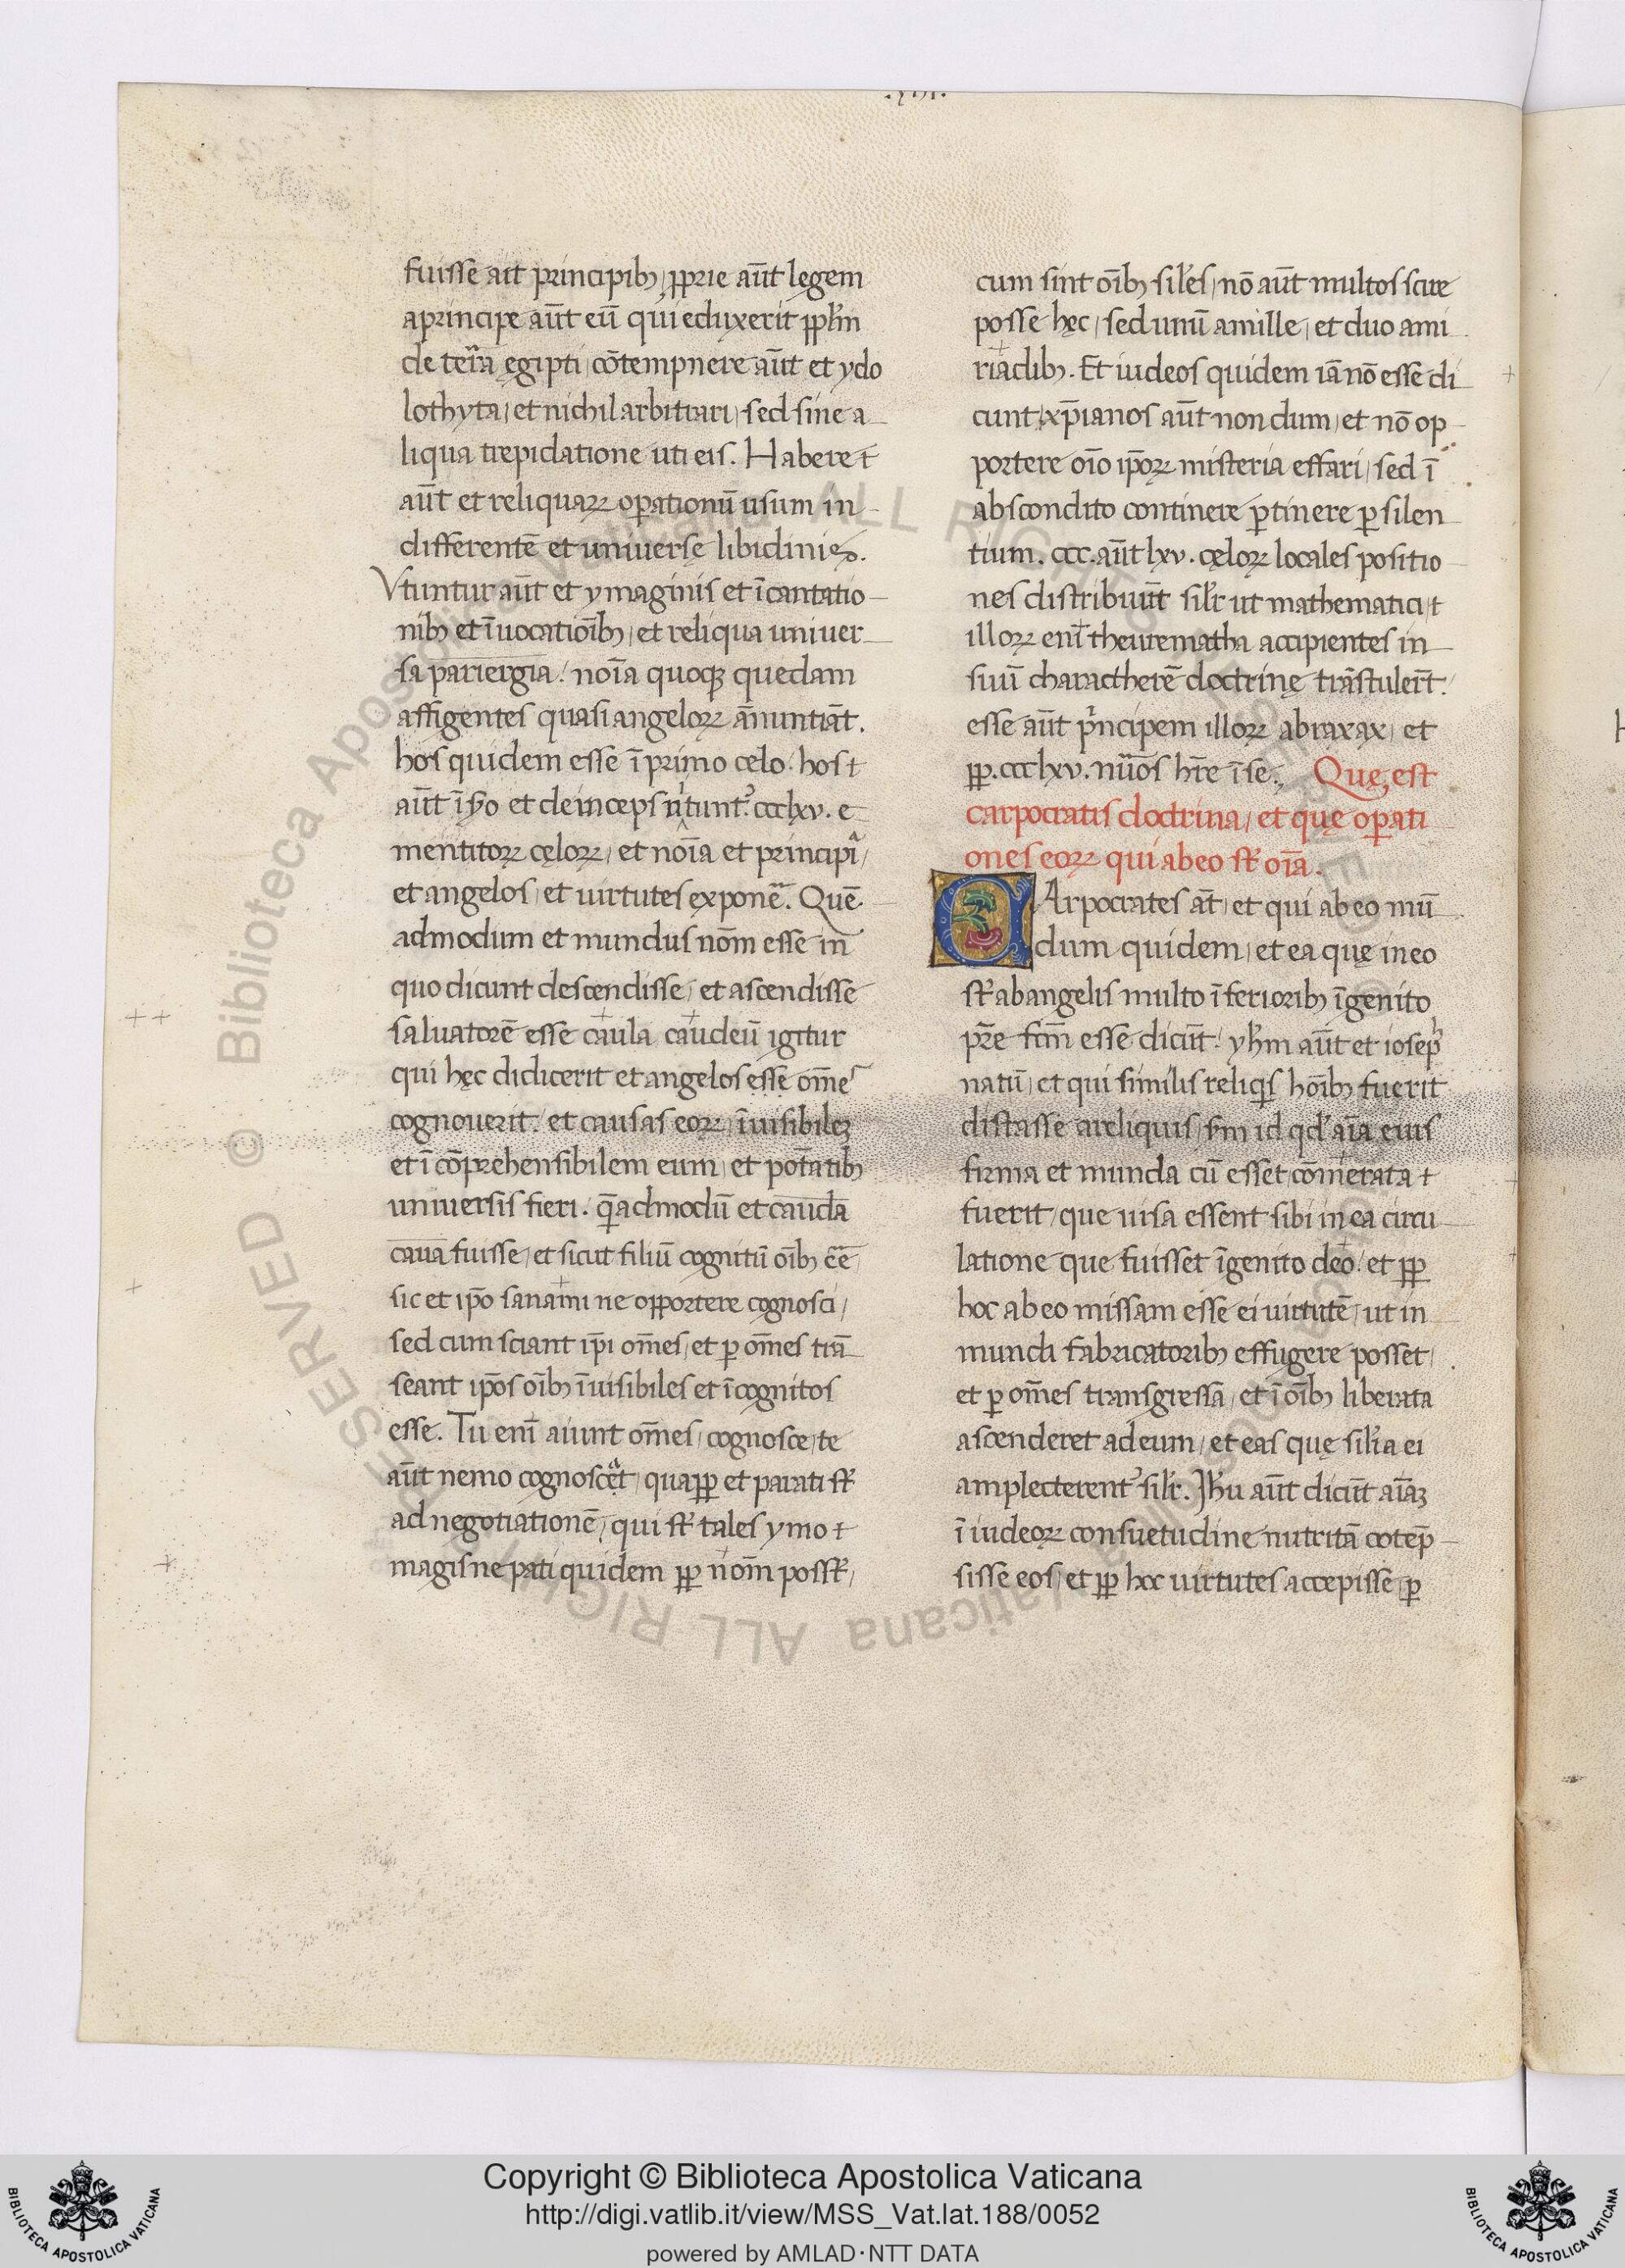 fuisse ait principib; ꝓprie aūt legem
a principe aūt eū qui eduxerit pplm̄
de terra ęgipti cōtempnere aūt et ydo
lothyta, et nichil arbitrari, sed sine a
liqua trepidatione uti eis. Habere
aūt et reliquaꝝ oꝑationū usum in
differentē et uniuersę libidinis.
Vtuntur aūt et ymaginis et īcantatio
nib; et īuocatiōib;, et reliqua uniuer
sa pariergia. noīa quoq; quedam
affigentes quasi angeloꝝ ānuntiāt.
hos quidem esse ī primo celo. hos
aūt ī sc̄do et deinceps
mentitoꝝ cęloꝝ, et noīa et principia,
et angelos, et uirtutes exponē. Quē
admodum et mundus nōm esse in
quo dicunt descendisse, et ascendisse
saluatorē esse caula caudeū igitur
qui hęc didicerit et angelos esse om̄es
cognouerit. et causas eoꝝ, īuisibilez
et ī cōprehensibilem eum, et pot̄atib;
uniuersis fieri. q̄admodū et cauda
caua fuisse, et sicut filiū cognitū oīb; eē
sic et ip̄o sanamine opportere cognosci,
sed cum sciant ip̄i om̄es, et ꝑ om̄es trā
seant ip̄os oīb; īuisibiles et īcognitos
esse. Tu enī aiunt om̄es, cognosce, te
aūt nemo cognoscat, quapp et parati st̄
ad negotiationē, qui st̄ tales ymo
magis ne pati quidem pp nōm posst̄,
cum sint oīb; siles, nō aūt multos scire
posse hęc, sed unū a mille, et duo a mi
riadib;. Et iudeos quidem iā nō esse di
cunt, xp̄ianos aūt non dum, et nō op
portere oīo ip̄oꝝ misteria effari, sed ī
abscondito continere ꝑtinere ꝑ silen
tium. ccc. aūt lxv. cęloꝝ locales positio
nes distribuūt silr ut mathematici,
illoꝝ enī theurematha accipientes in
suū characterē doctrinę trāstulert̄.
esse aūt pͥncipem illoꝝ abraxax, et
pp. ccclxv. num̄os hr̄e ī se. Quę est
carpocratis doctrina, et quę oꝑati
ones eoꝝ qui ab eo st̄ oīa.
CArpocrates āt, et qui ab eo mū
dum quidem, et ea quę in eo
st̄ ab angelis multo īferiorib; īgenito
pr̄e fcm̄ esse dicūt. yhm̄ aūt et iosep
natū, et qui similis reliqͥs hōib; fuerit
distasse a reliquis, scdm̄ id qd̄ aīa eius
firma et munda cū esset, cōmerata
fuerit, que uisa essent sibi in ea circu
latione que fuisset īgenito deo. et pp
hoc ab eo missam esse ei uirtutē, ut in
mundi fabricatorib; effugere posset,
et ꝑ om̄es transgressā, et ī oīb; liberata
ascenderet ad eum, et eas quę silia ei
amplecterent silr. Jhu aūt dicūt aīaz
ī iudeoꝝ consuetudine nutritā cōtēp
sisse eos, et pp hoc uirtutes accepisse, ꝑ
Copyright © Biblioteca Apostolica Vaticana
http://digi.vatlib.it/view/MSS_Vat.lat.188/0052
powered by AMLAD·NTT DATA
BIBLIOTECA APOSTOLICA VATICANA
BIBLIOTECA APOSTOLICA VATICANA
© Biblioteca Apostolica Vaticana ALL RIGHTS RESERVED